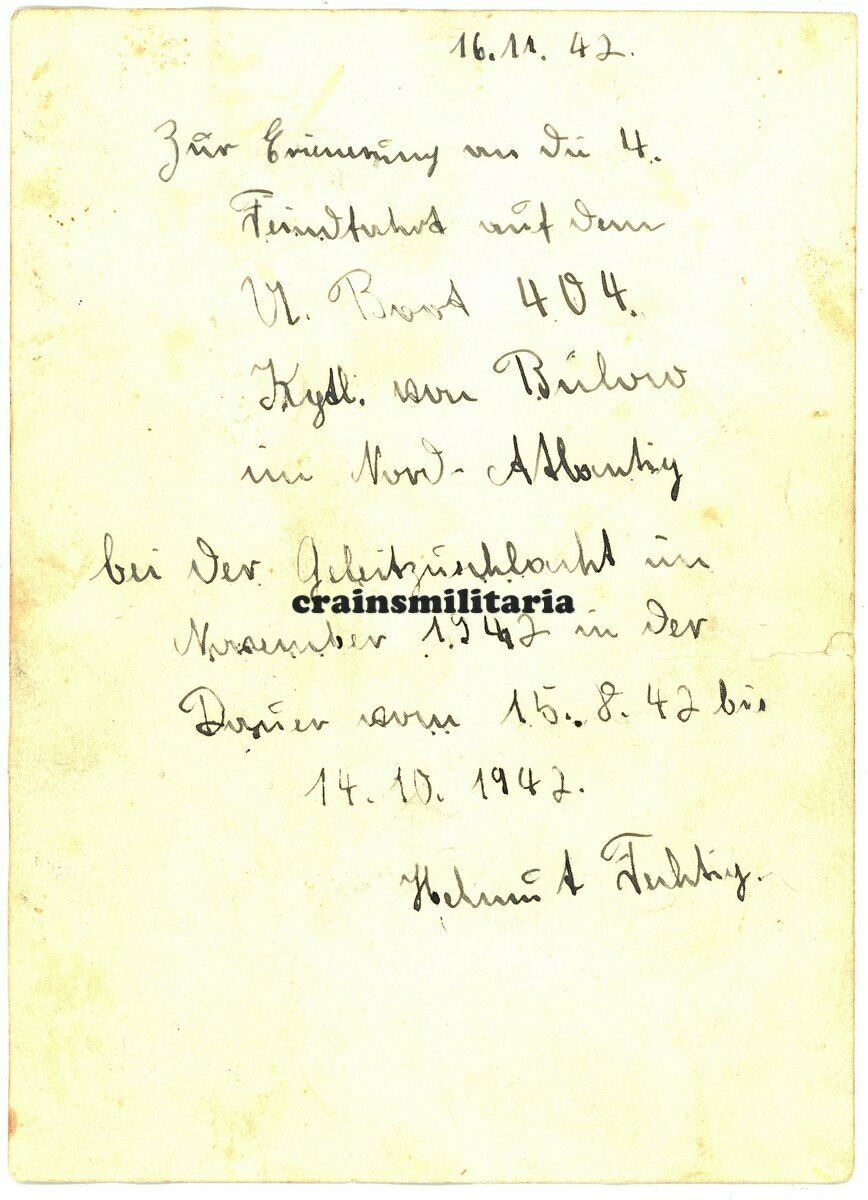 16.11.42.
Zur Erienerung an die 4.
Feindfahrt auf dem
U. Boot 404.
Kptl. von Bülow
im Nord-Atlantig
bei der Geleitzuschlacht im
crainsmilitaria
November 1942 in der
Dauer vom 15. 8. 42 bis
14. 10. 1942.
Helmut